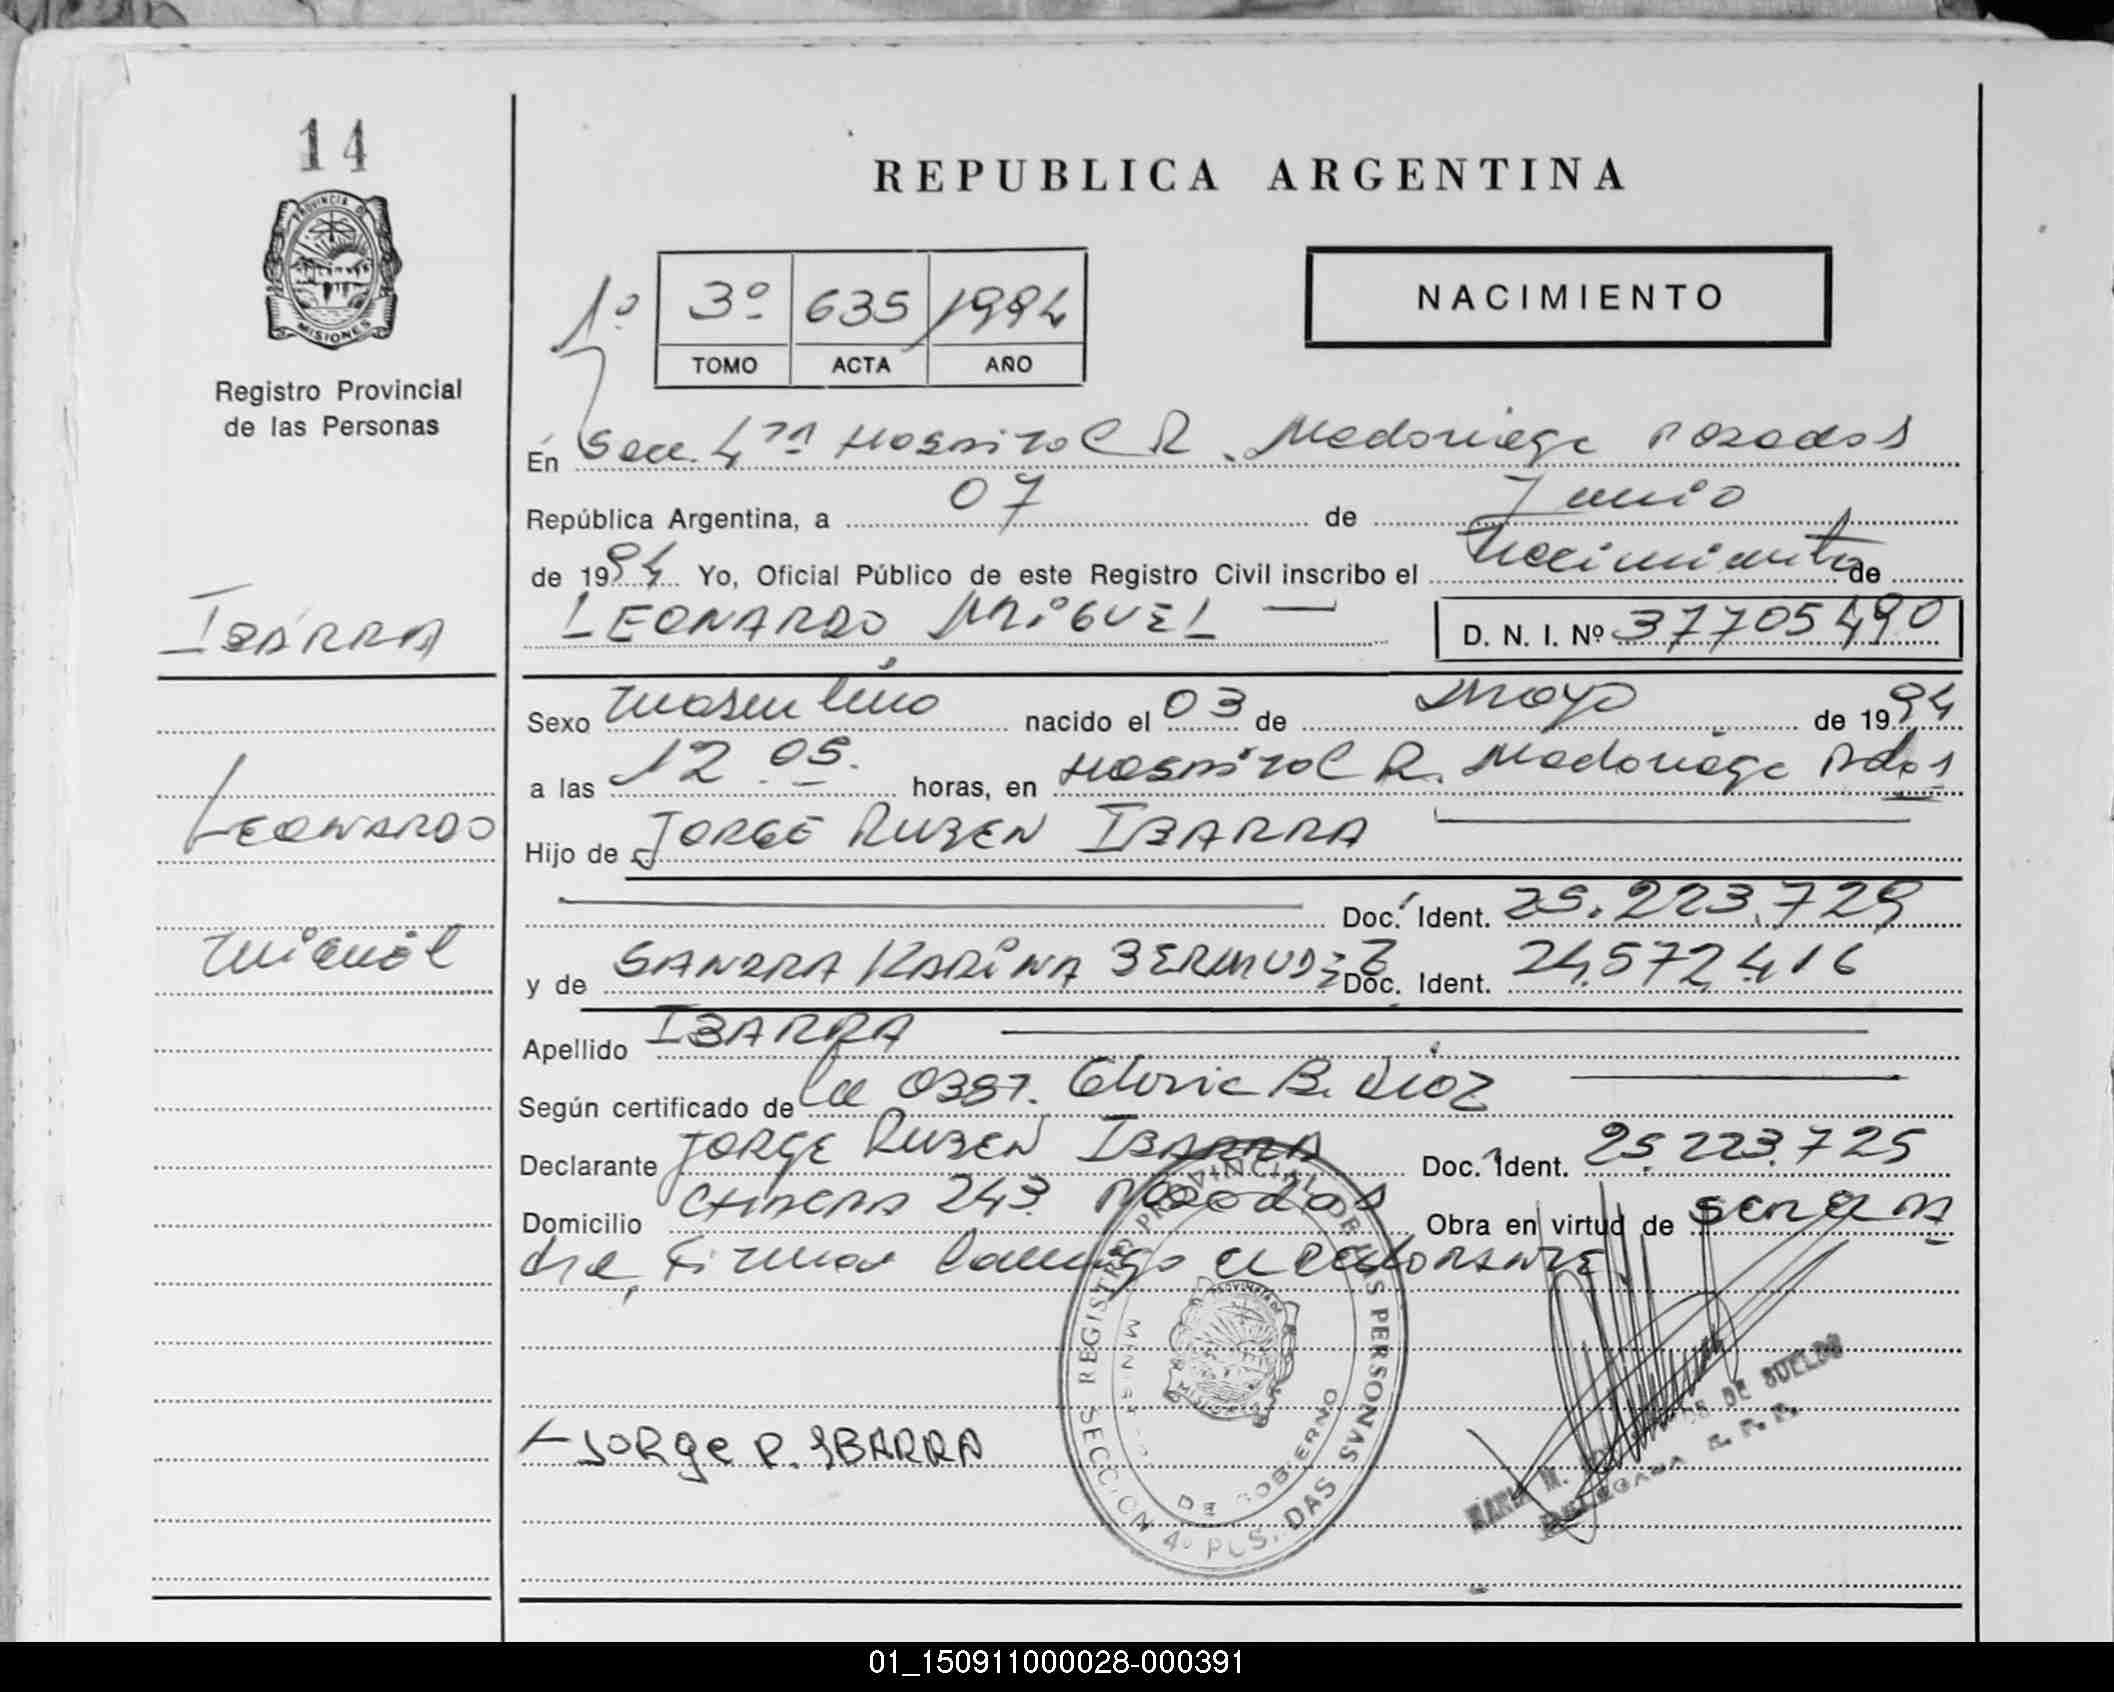 14
PROVINCIA DE
MISIONES
Registro Provincial
de las Personas
REPUBLICA ARGENTINA
1º 3º 635 1994
TOMO ACTA AÑO
NACIMIENTO
En Secc. 4ta Hospital R. Madariaga Posadas
República Argentina, a 07 de Junio
de 1994 Yo, Oficial Público de este Registro Civil inscribo el Nacimiento de
LEONARDO MIGUEL
D. N. I. Nº 37705490
IBARRA
Leonardo
Miguel
Sexo masculino nacido el 03 de mayo de 1994
a las 12.05. horas, en Hospital R. Madariaga Pdas
Hijo de JORGE RUBEN IBARRA
Doc. Ident. 25.223.729
y de SANDRA KARINA BERMUDEZ Doc. Ident. 24.572.416
Apellido IBARRA
Según certificado de la Obst. Gloria B. Diaz
Declarante JORGE RUBEN IBARRA Doc. Ident. 25.223.725
Domicilio 243 Posadas Obra en virtud de ser el pa
dre, Firma Conmigo el declarante.
REGISTRO PROVINCIAL DE LAS PERSONAS
SECCION 4º PCS. DAS
DE GOBIERNO
MISIONES
JORge R. IBARRA
MARIA M. DE SUELDO
DELEGADA R. P. P.
01_150911000028-000391